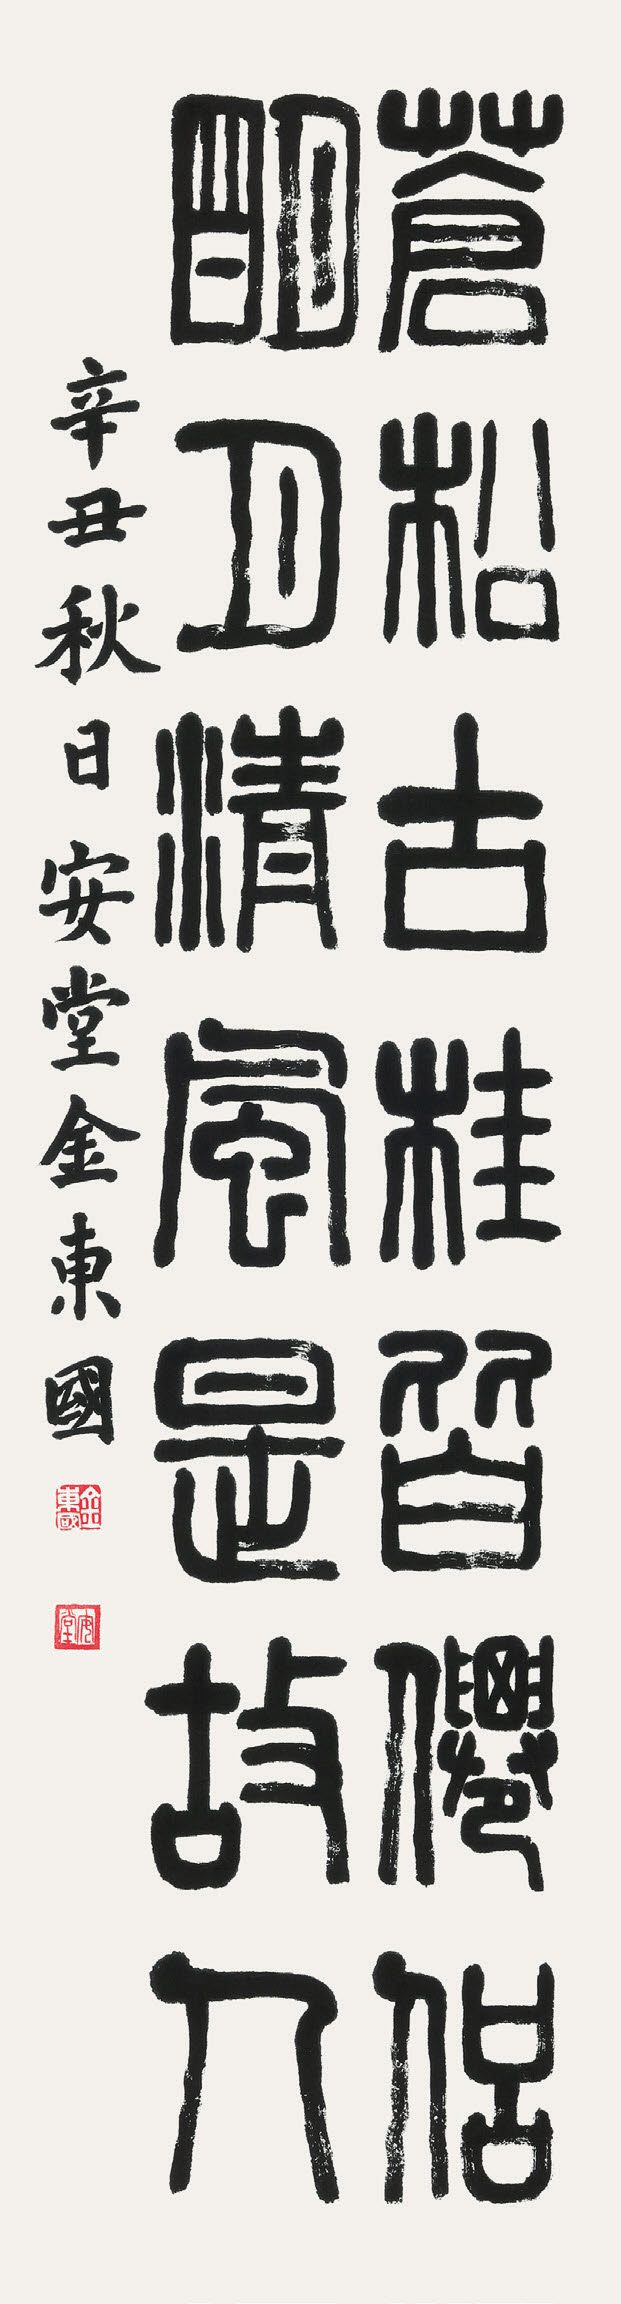 蒼松古桂皆僊侶
朙月清風是故人
辛丑秋日安堂金東國
金東國
安堂